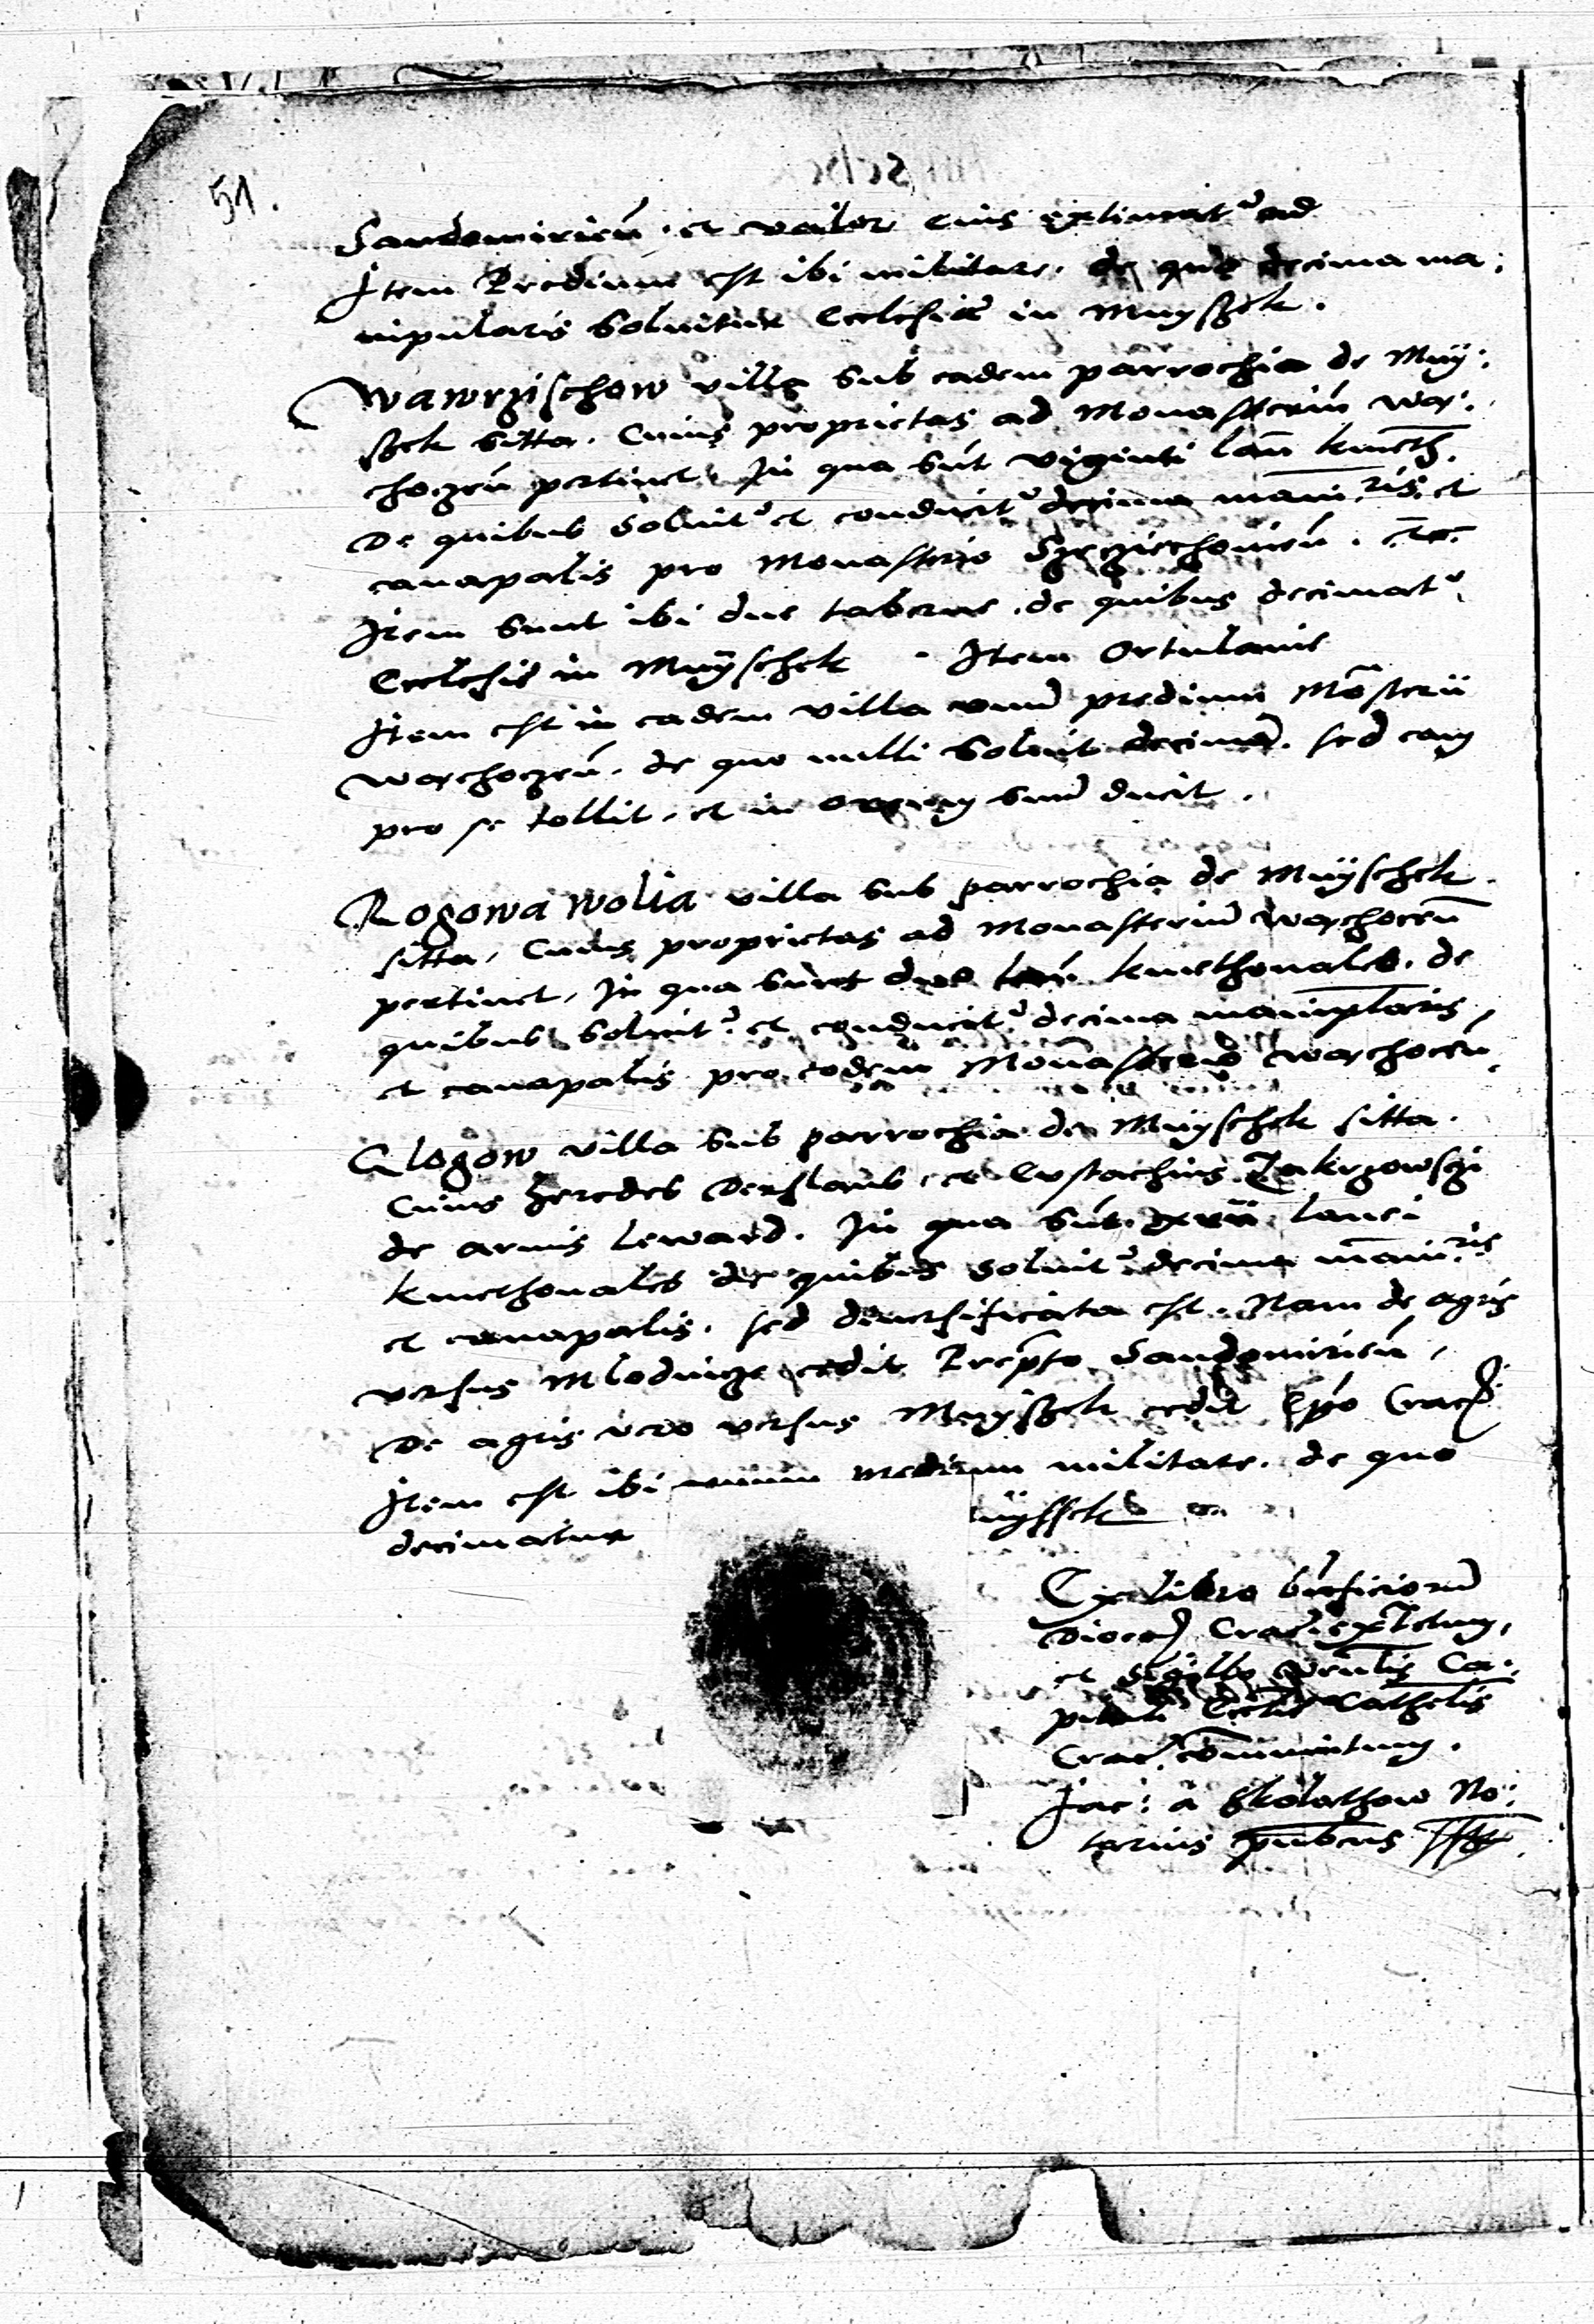 51.
Sandomirien̄. et valor eius extimat᷑ ad
Item Predium est ibi militare. de quo decima ma:
nipularis soluitur Ecclesiæ in Muyszek.
Wawrzischow villa sub eadem parrochia de Muy:
szek sitta. Cuius proprietas ad Monasteriū Wa:
choczen̄ pertinet. In qua sūt viginti lan̄ kmeth.
De quibus soluit᷑ et conducit᷑ decima mani:ris. et
canapalis pro Monasterio Szecziechouien̄. etc
Item sunt ibi due taberne. de quibus decimat᷑
Ecclesie in Muyschek . Item Ortulanie
Item est in eadem villa vnū predium Mōsterii
Wachoczen̄. de quo nulli soluit decimā. sed eam
pro se tollit. et in suū ducit.
Rogowa Wolia villa sub parrochia de Muyschek
sitta, Cuius proprietas ad Monasteriū Wachocen̄
pertinet, In qua sunt duo kmethonales. de
quibus soluit᷑ et conducit᷑ decima manip̄laris,
et canapalis pro eodem Monasterio Wachocen̄.
Glogow villa sub parrochia de Muyschek sitta.
Cuius heredes Derslaus et Eustachius Zakrzowszi
de armis Leward. In qua sūt lanei
kmethonales de quibus soluit᷑ decima mani:ris
et canapalis. sed diuersificata est. Nam de agris
versus Mlodnicze cedit Prep̄to Sandomirien̄,
De agris vero versus Muyszek cedit Ep̄o Crac
Item est ibi vnum predium militare. de quo
decimatur uyssek
Ex libro bn̄ficiorū
Dioces Crac ext̄ctum,
et sigillo Ven̄lis Ca:
pituli Eccl̄ie Cathel̄is
Crac com̄unitum.
Jac: a Skolathow No:
tarius pub̄cus